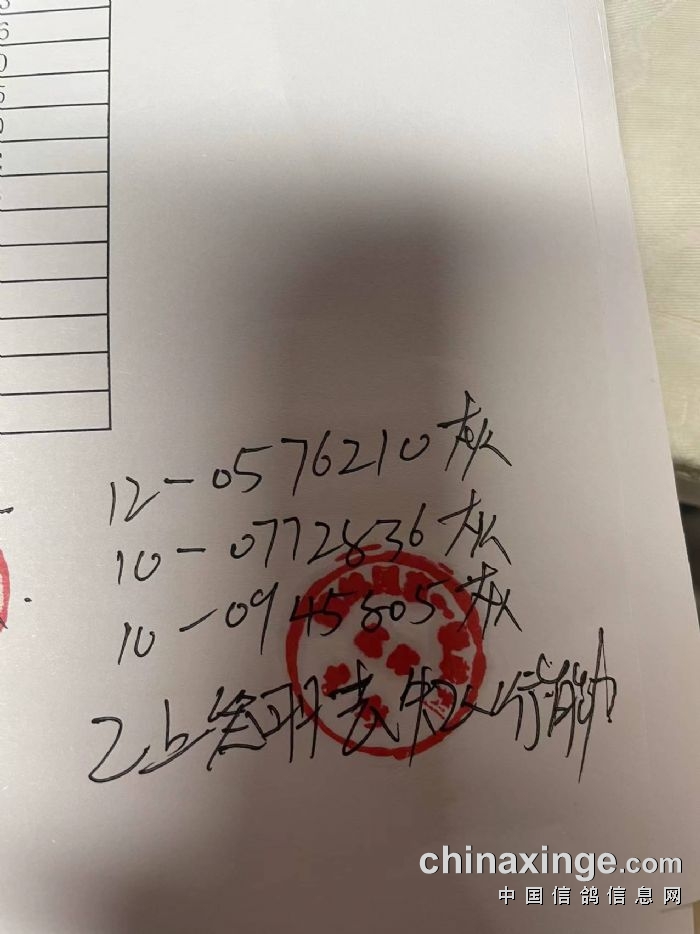 12-0576210灰
10-0772836灰
10-0945805灰
以上叁羽丧失飞行能力
chinaxinge.com
中国信鸽信息网